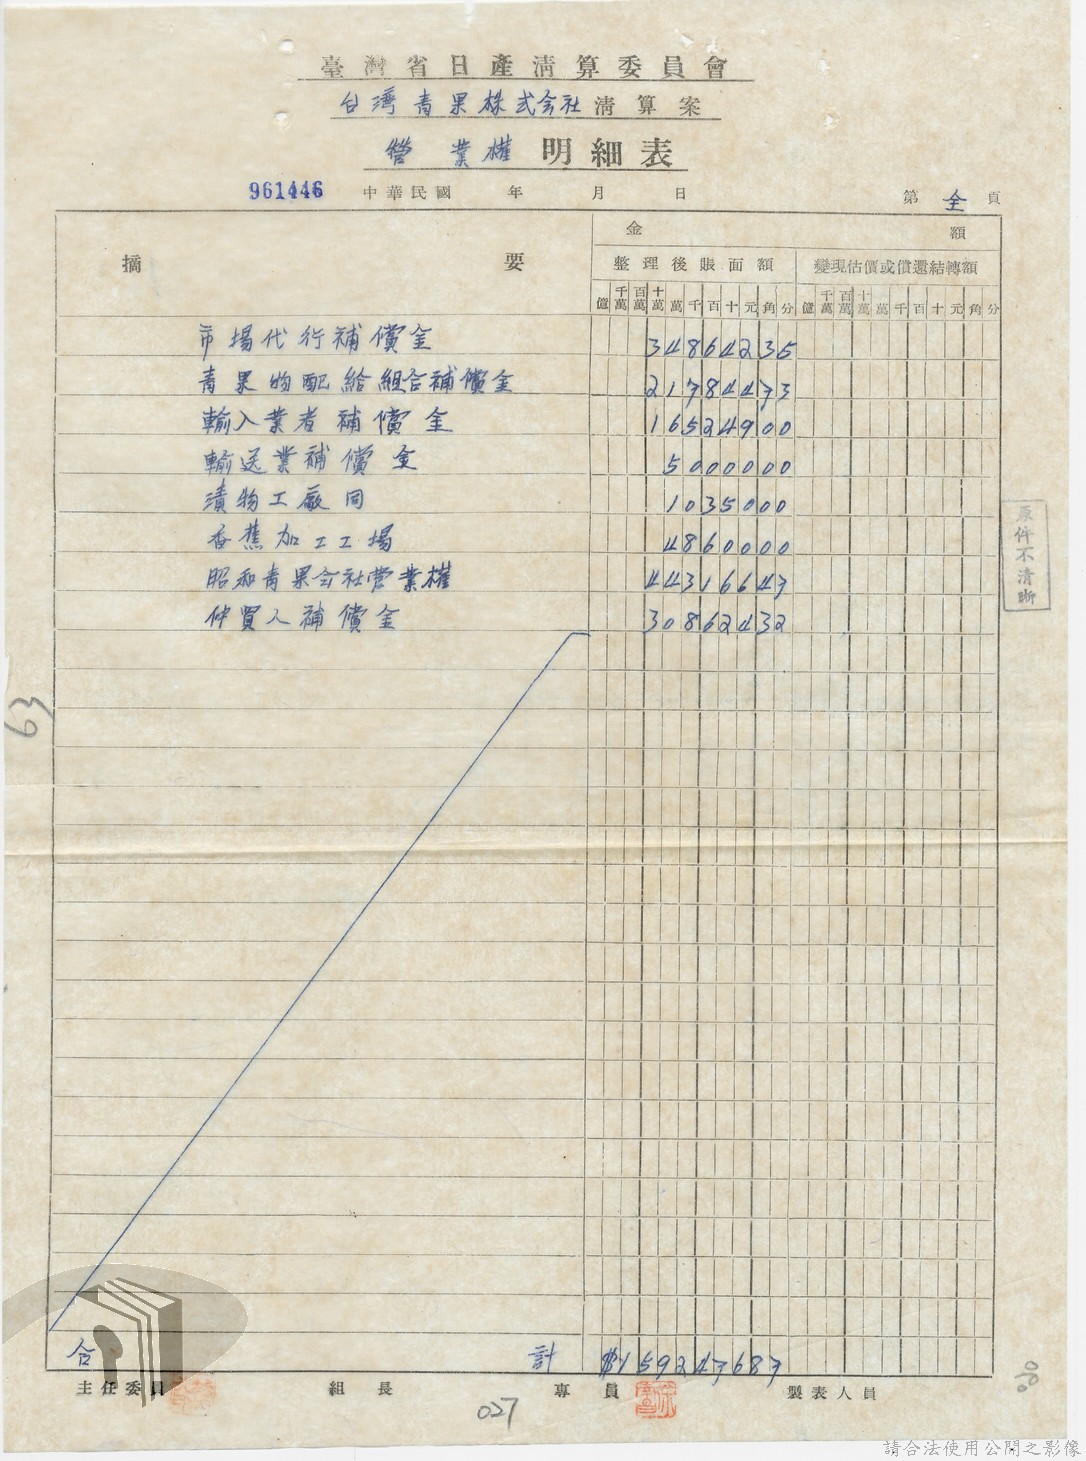 臺灣省日產清算委員會
台灣青果株式会社清算案
營業權明細表
961446 中華民國 年 月 日 第全頁
金額
摘要 整理後賬面額 變現估價或償還結轉額
億 千萬 百萬 十萬 萬 千 百 十 元 角 分 億 千萬 百萬 十萬 萬 千 百 十 元 角 分
市場代行補償金 34864235
青果物配給組合補償金 21784473
輸入業者補償金 16524900
輸送業補償金 5000000
漬物工廠同 1035000
香蕉加工工場 4860000
昭和青果会社営業權 44316647
仲買人補償金 30862432
原件不清晰
63
合計 $159247687
主任委員 組長 專員 製表人員
027
請合法使用公開之影像